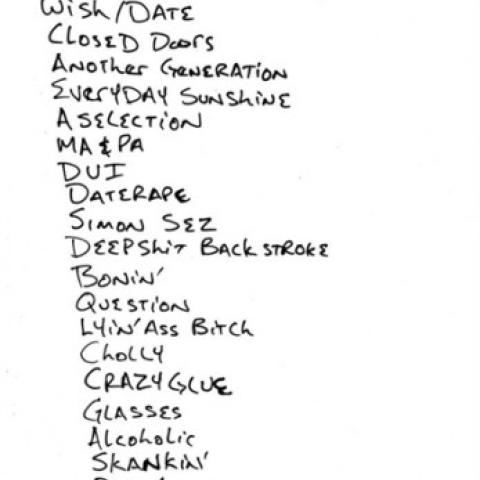 Wish/DATE
CLOSED DOORS
ANOTHER GENERATION
EVERYDAY SUNSHINE
A SELECTION
MA & PA
DUI
DATERAPE
SIMON SEZ
DEEPSHIT BACK STROKE
BONIN'
QUESTION
LYIN' ASS BITCH
CHOLLY
CRAZY GLUE
GLASSES
Alcoholic
SKANKIN'